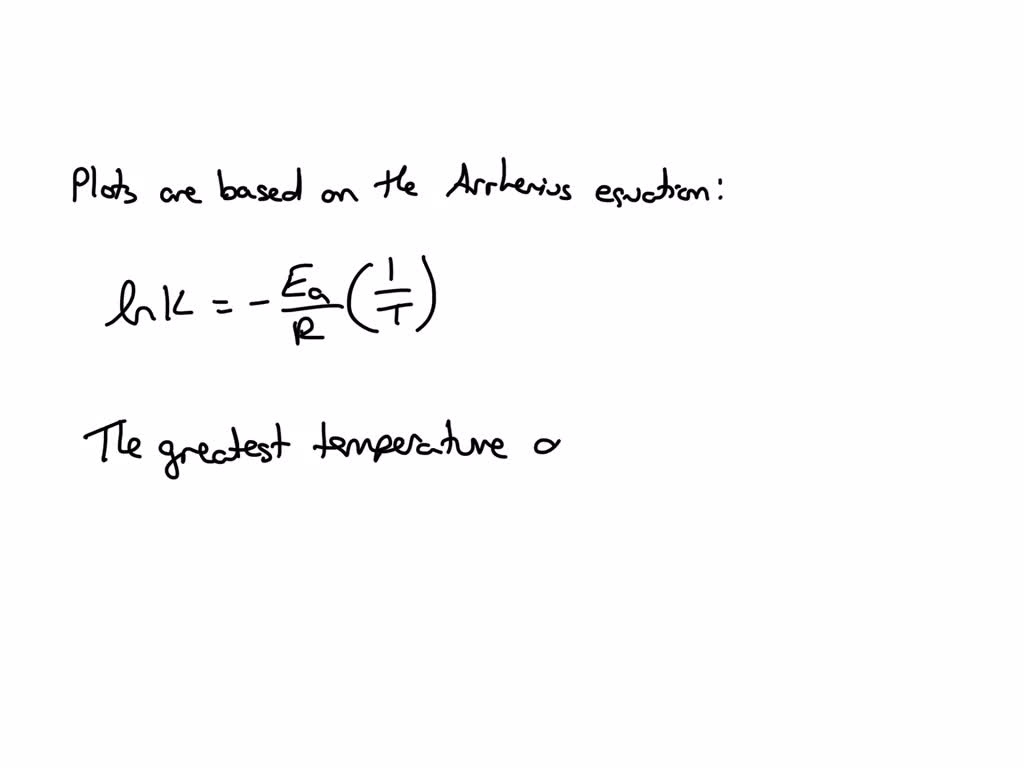 Plots are based on the Arrhenius equation:
ln K = - Ea/R (1/T)
The greatest temperature